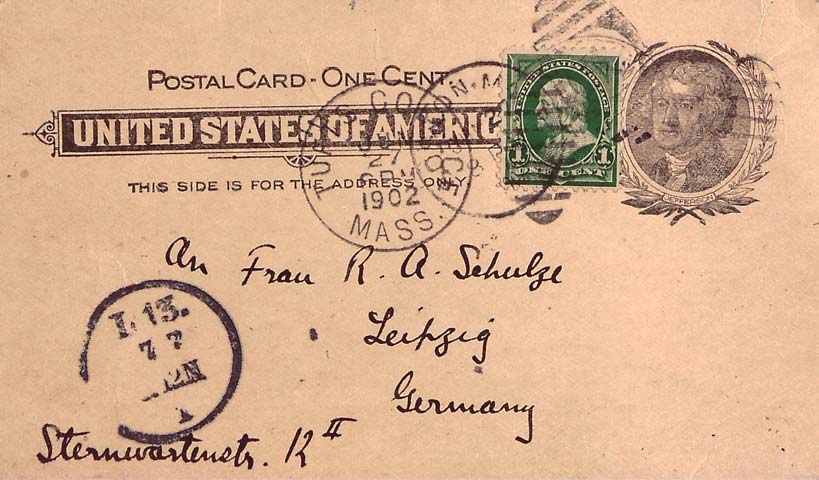 POSTAL CARD - ONE CENT.
UNITED STATES OF AMERIC
THIS SIDE IS FOR THE ADDRESS ONLY.
TUFTS COL
27
6 PM
1902
MASS.
BOSTON, M
UNITED STATES POSTAGE
1 1
ONE CENT
JEFFERSON
An Frau R. A. Schulze
Leipzig
Germany
Sternwartenstr.
II
L 13.
7 7
12N
1